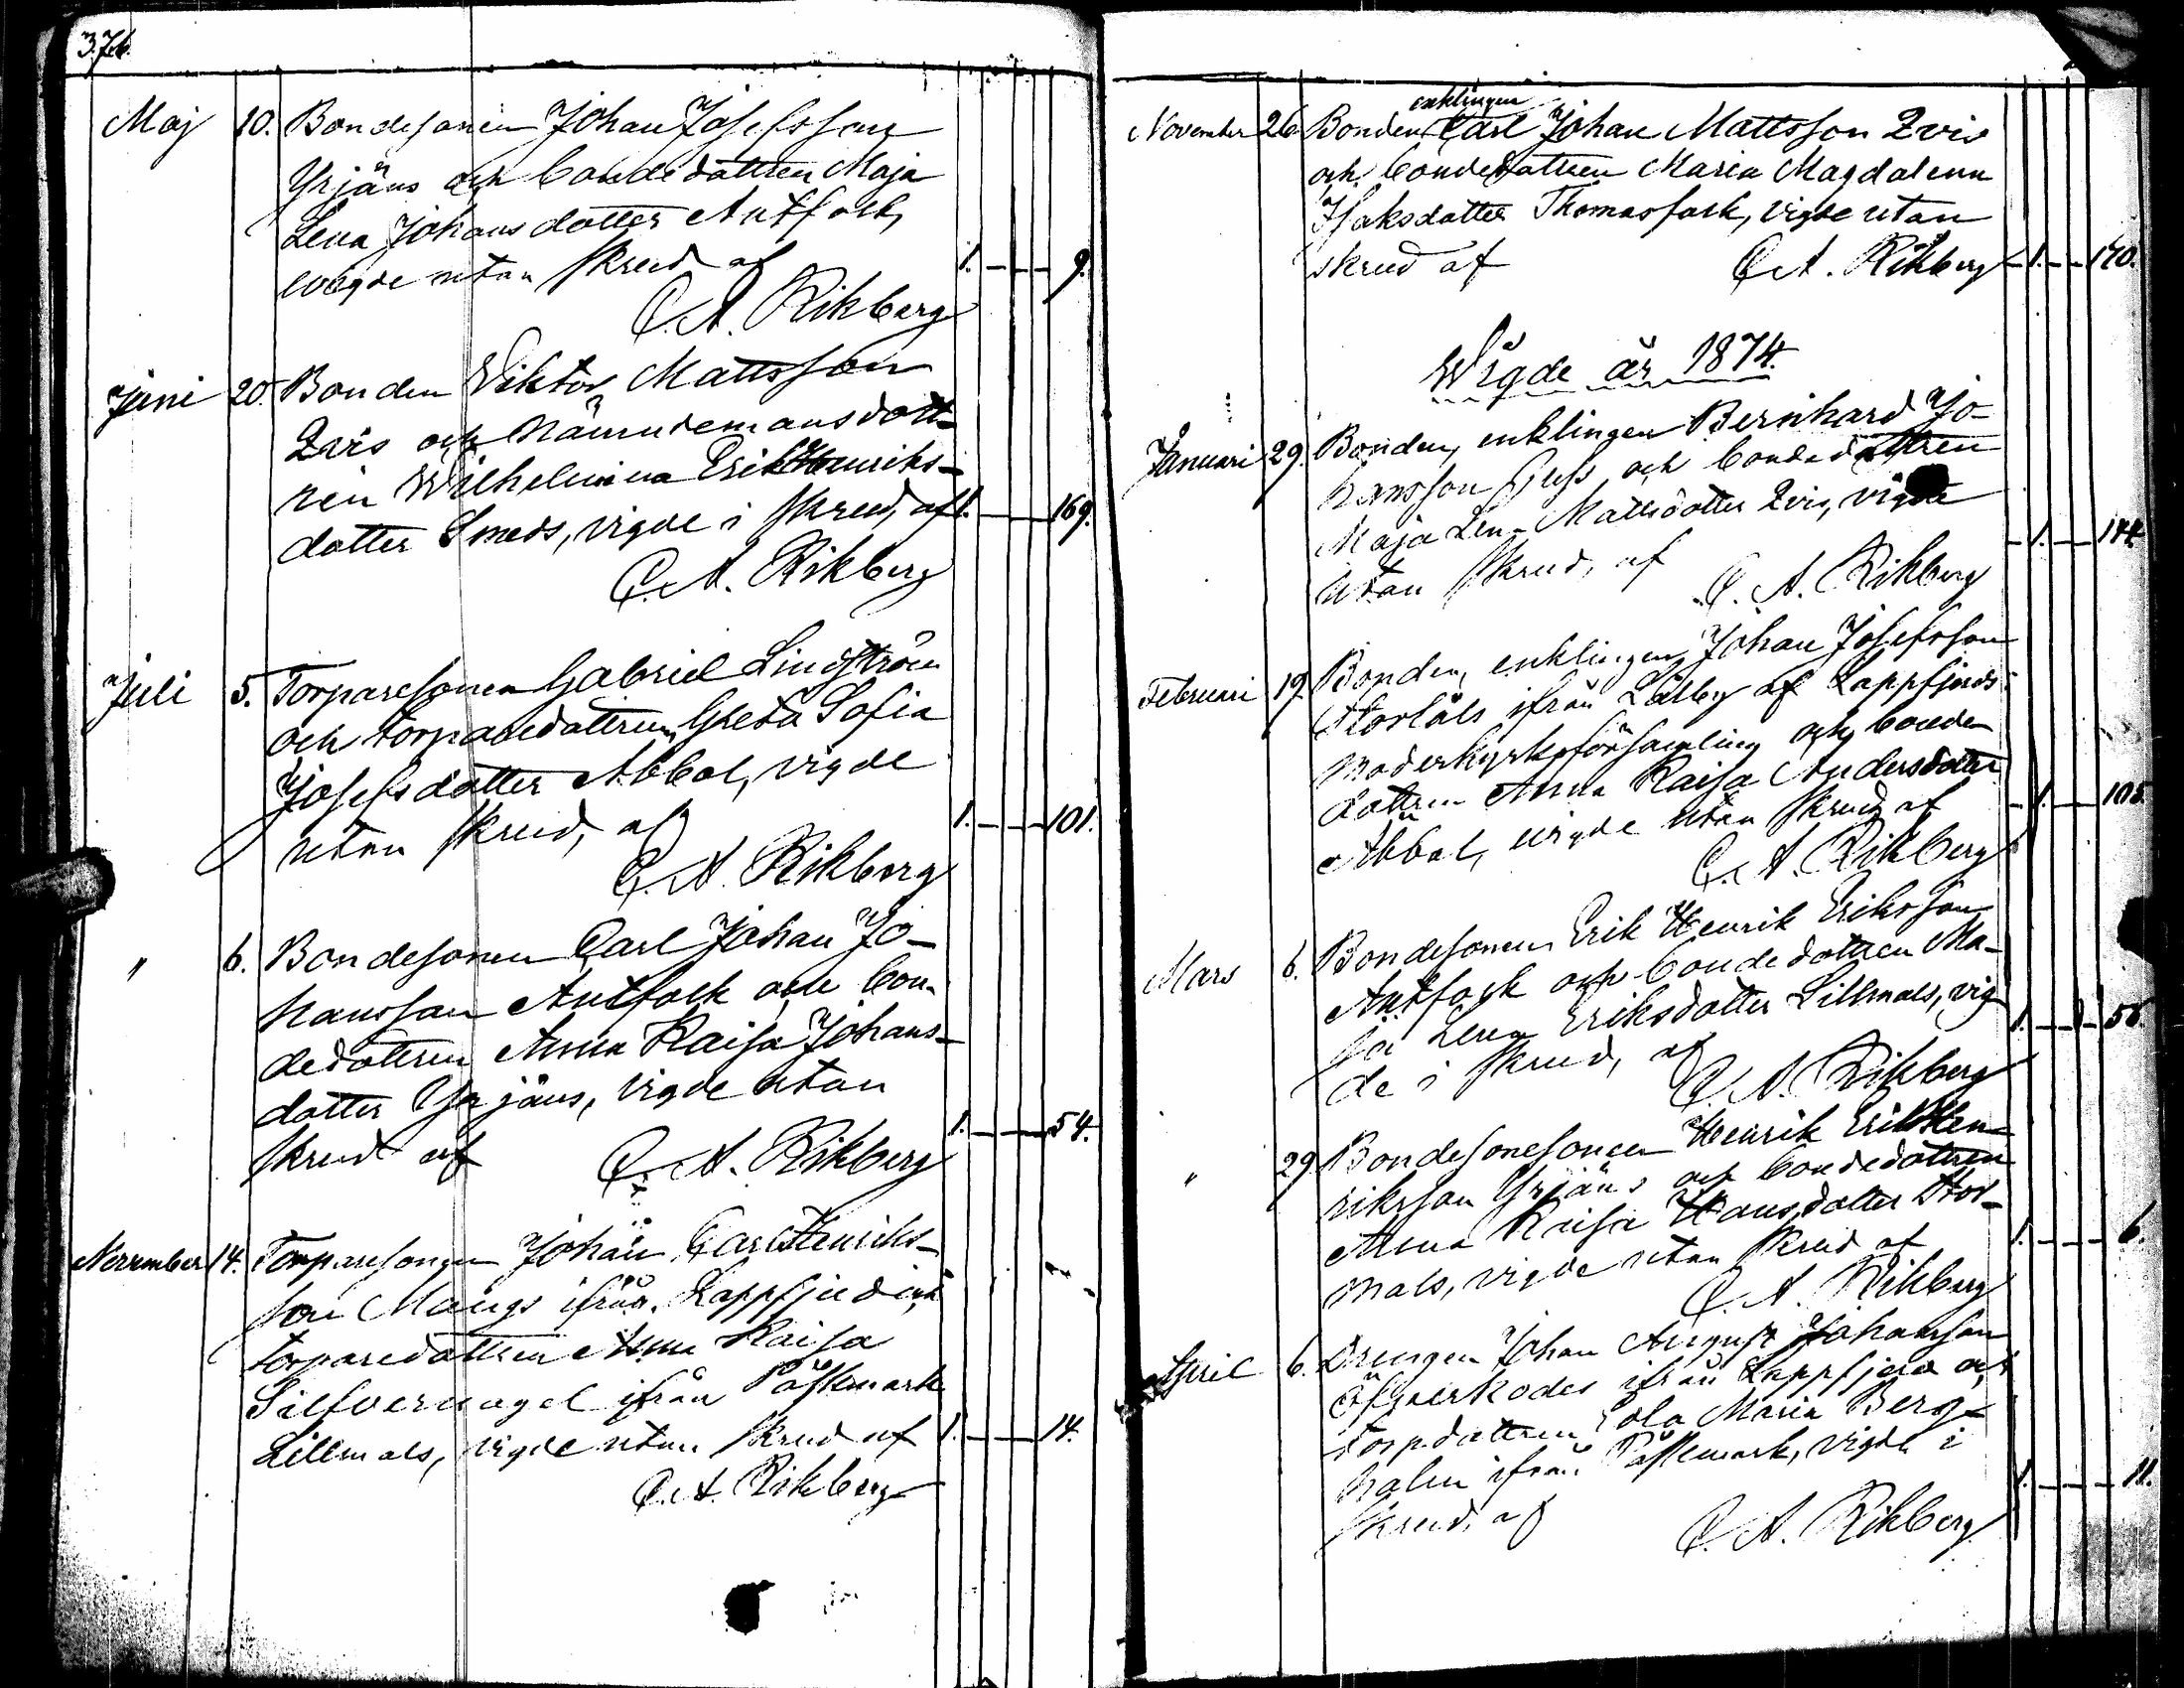 376.
Maj 10. Bondesonen Johan Josefsson
Yrjäns och bondedottren Maja
Lena Johansdotter Antfolk,
wigde utan skrud af 1. 9.
C. A. Rikberg
Juni 20. Bonden Viktor Mattsson
Qvis och nämndemansdott-
ren Wilhelmina Erik Henriks-
dotter Smeds, vigde i skrud, af 1. 169.
C. A. Rikberg
Juli 5. Torparesonen Gabriel Lindström
och torparedottren Greta Sofia
Josefsdotter Abbal, vigde
utan skrud, af 1. 101.
C. A. Rikberg
" 6. Bondesonen Carl Johan Jo-
hansson Antfolk och bon-
dedottren Anna Kaisa Johans-
dotter Yrjäns, vigde utan
skrud af 1. 54.
C. A. Rikberg
November 14. Torparesonen Johan Carl Henriks-
son Mangs ifrån Lappfjerd och
torparedottren Anna Kaisa
Silfvernagel ifrån Påskmark
Lillmals, vigde utan skrud af 1. 14.
C. A. Rikberg
enklingen
November 26. Bonden Carl Johan Mattsson Qvis
och bondedottren Maria Magdalena
Isaksdotter Thomasfolk, vigde utan
skrud af C. A. Rikberg 1. 170.
Wigde år 1874.
Januari 29. Bonden, enklingen Bernhard Jo-
hansson och bondedottren
Maja Lena Mattsdotter Qvis, vigde
utan skrud, af 1. 144.
C. A. Rikberg
Februari 19. Bonden, enklingen Johan Josefsson
Storlåls ifrån Lålby af Lappfjerds
moderkyrkoförsamling och bonde
dottren Anna Kaisa Andersdotter
Abbal, vigde utan skrud af 1. 105.
C. A. Rikberg
Mars 6. Bondesonen Erik Henrik Eriksson
Antfolk och bondedottren Ma-
ja Lena Eriksdotter Lillmals, vig-
de i skrud, af 1. 56.
C. A. Rikberg
" 29. Bondesonesonen Henrik Erik Hen-
riksson Yrjäns och bondedottren
Anna Kaisa Hansdotter Stor-
mals, vigde utan skrud af 1. 6.
C. A. Rikberg
April 6. Drengen Johan August Johansson
ifrån Lappfjerd och
torp.dottren Maria Berg-
holm ifrån Påskmark, vigde i
skrud, af 1. 11.
C. A. Rikberg